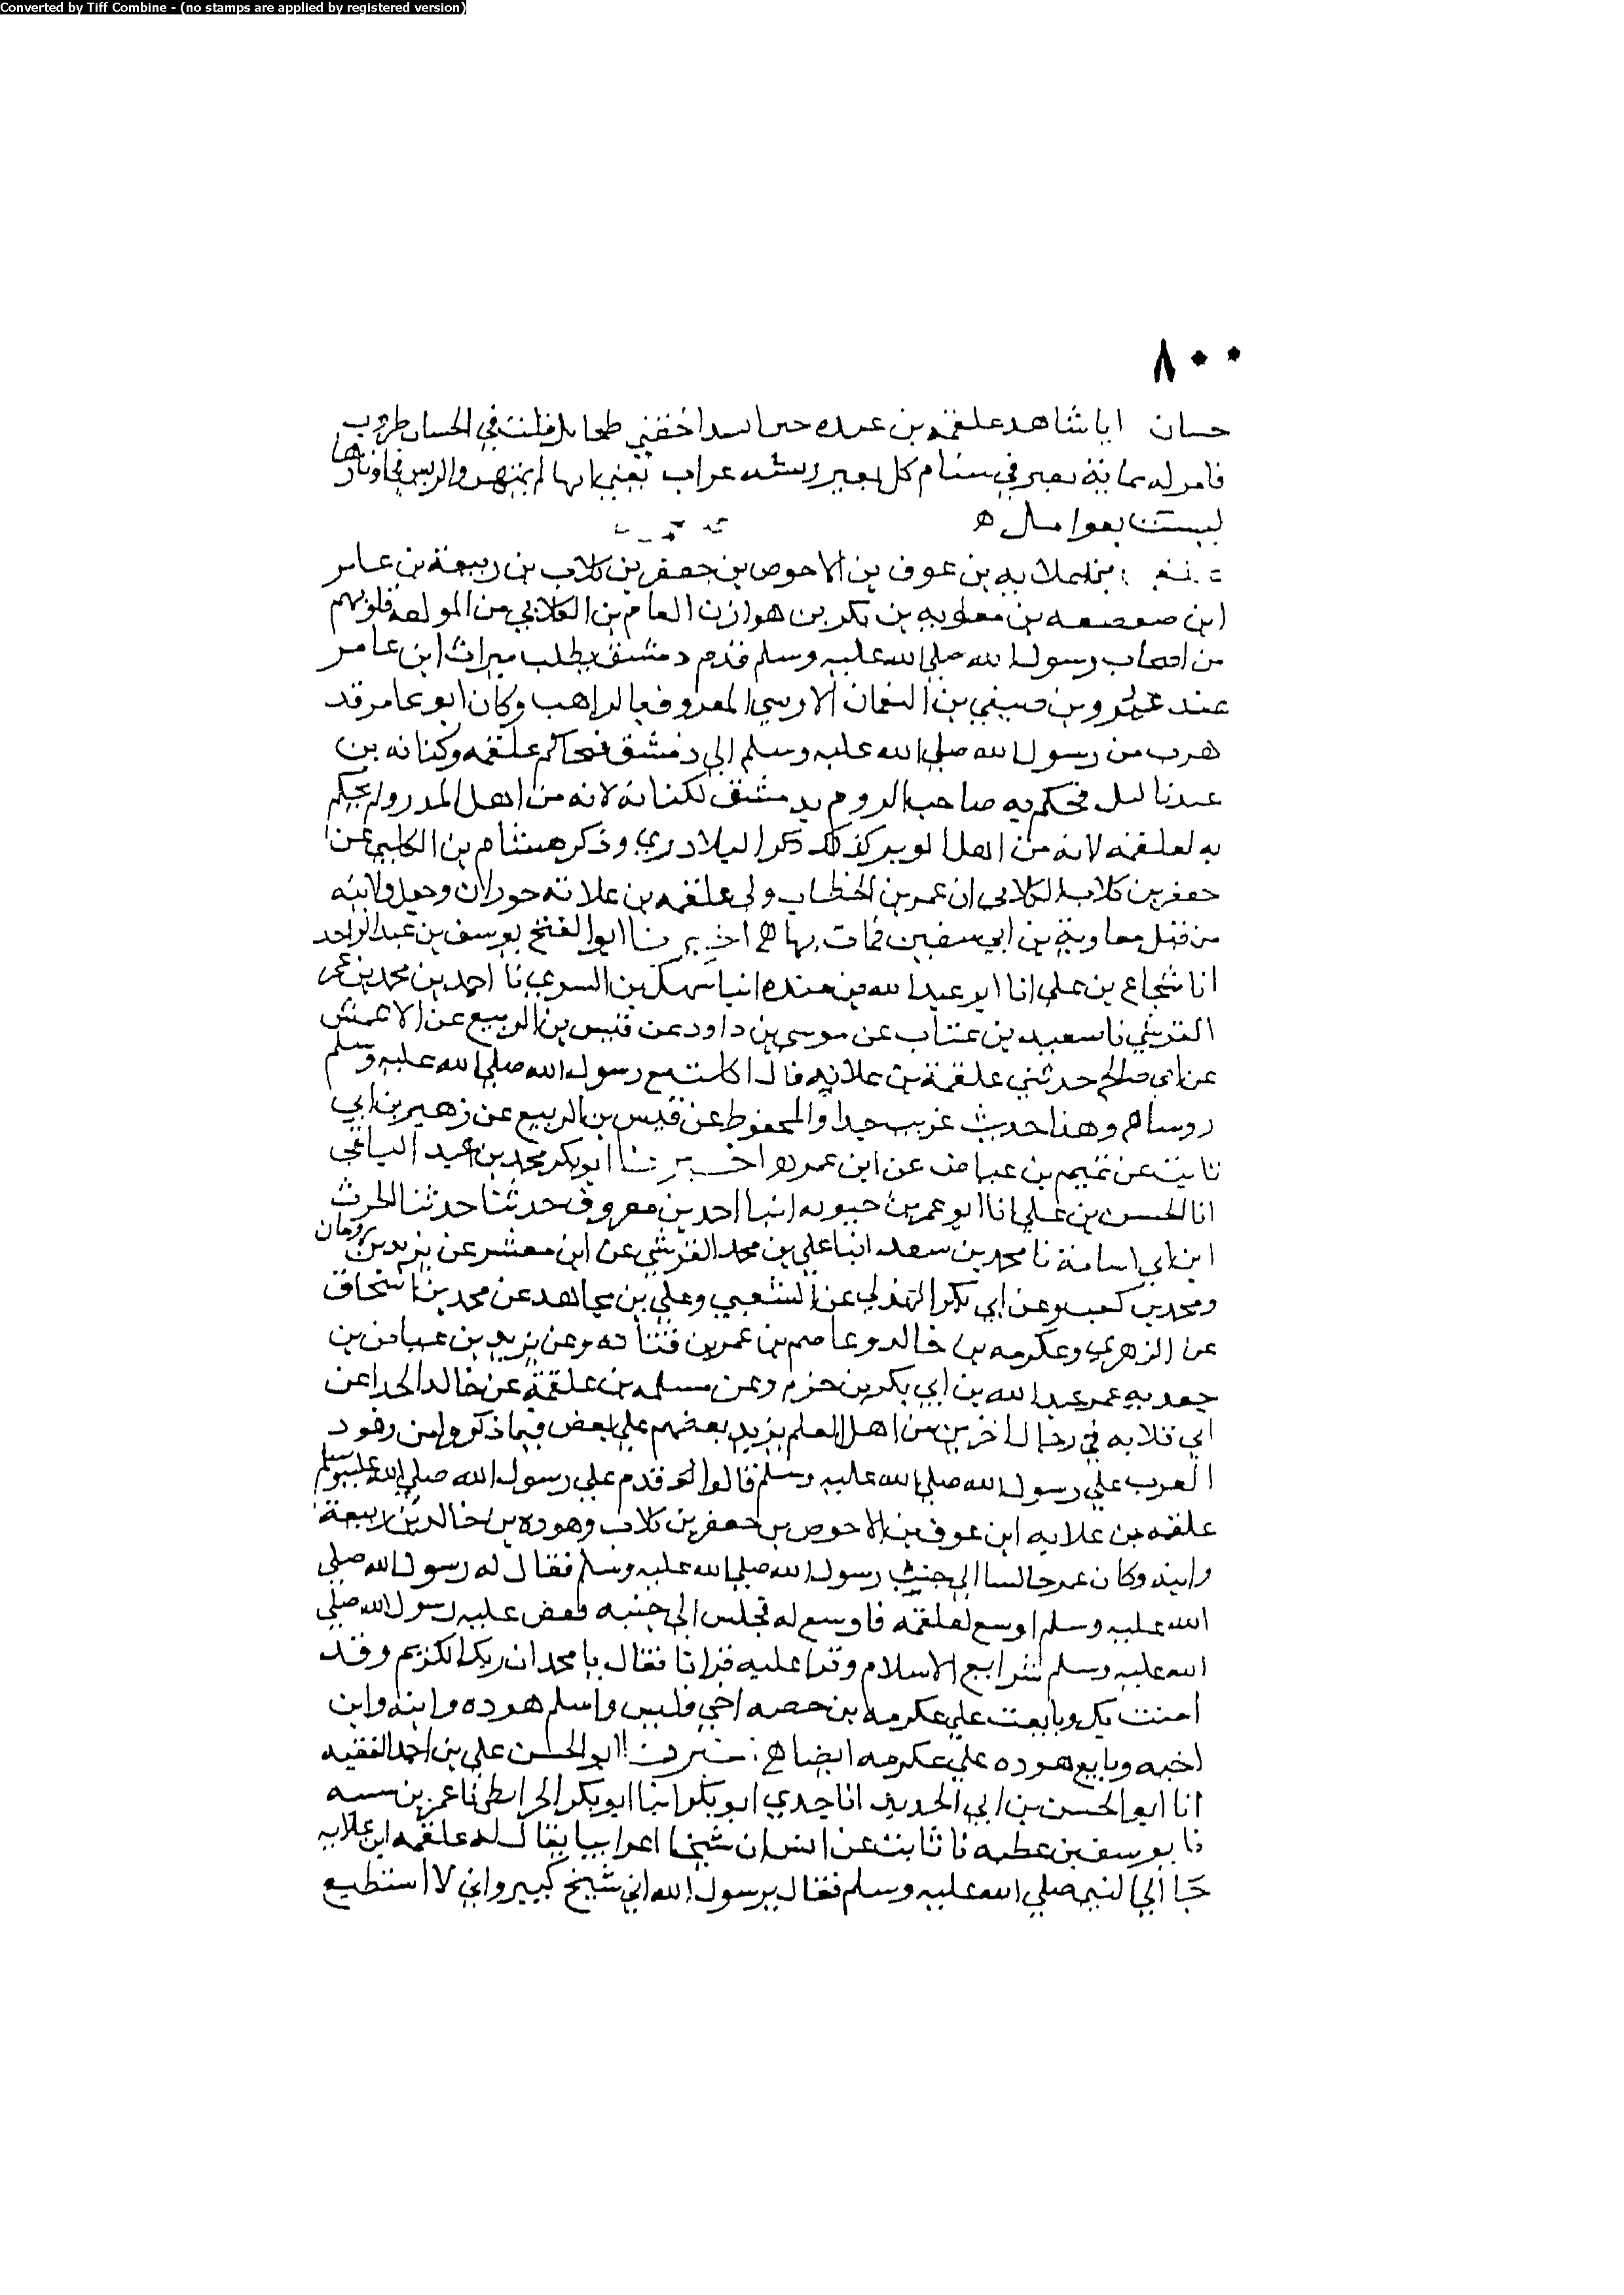 Converted by Tiff Combine - (no stamps are applied by registered version)
٨٠٠
حسان ايا شاهد علقمه بن عبده حين اسد اخفني طحا بك قلب في الحسان طروب
فامر له بماية بعير في سنام كل بعير ريشه غراب يعني بانها لم يمتهن والريس في اوبارها
ليست بعوامل ه
علقمه بن علاثه بن عوف بن الاحوص بن جعفر بن كلاب بن ربيعة بن عامر
ابن صعصعه بن معاويه بن بكر بن هوازن العامري الكلابي من المولفه قلوبهم
من اصحاب رسول الله صلي الله عليه وسلم قدم دمشق يطلب ميراث ابن عامر
عند عمرو بن صيفي بن النعمان الاوسي المعروف بالراهب وكان ابو عامر قد
هرب من رسول الله صلي الله عليه وسلم الي دمشق فتحاكم علقمه وكنانه بن
عبد ناليل فحكم به صاحب الروم بدمشق لكنانة لانه من اهل المدر ولم يحكم
به لعلقمه لانه من اهل الوبر كذلك ذكر البلادري وذكر هشام بن الكلبي عن
جعفر بن كلاب الكلابي ان عمر بن الخطاب ولى علقمه بن علاثه حوران وجعل ولايته
من قبل معاوية بن ابي سفين فمات بها ه اخبرنا ابو الفتح يوسف بن عبد الواحد
انا شجاع بن علي انا ابو عبد الله بن منده انبا سهل بن السري نا احمد بن محمد بن عمر
القرشي نا سعيد بن عتاب عن موسى بن داود عن قيس بن الربيع عن الاعمش
عن ابي صالح حدثني علقمة بن علاثه قال اكلت مع رسول الله صلي الله عليه وسلم
روسا ه وهذا حديث غريب جدا والمحفوظ عن قيس بن الربيع عن زهير بن ابي
ثابت عن تميم بن عياض عن ابن عمر ه اخبرنا ابو بكر محمد بن عبد الباقي
انا الحسن بن علي انا ابو عمر بن حيويه انبا احمد بن معروف حدثنا حدثنا الحرث
ابن ابي اسامة نا محمد بن سعد انبا علي بن محمد القرشي عن ابن معشر عن يزيد بن رومان
ومحمد بن كعب وعن ابي بكر الهذلي عن الشعبي وعلي بن مجاهد عن محمد بن اسحاق
عن الزهري وعكرمه بن خالد وعاصم بن عمر بن قتاده وعن يزيد بن عياض بن
جعدبه عن عبد الله بن ابي بكر بن حزم وعن مسلمه بن علقمة عن خالد الحذا عن
ابي قلابه في رجال اخرين من اهل العلم يزيد بعضهم علي بعض فيما ذكروا من وفود
العرب علي رسول الله صلي الله عليه وسلم قالوا قدم علي رسول الله صلي الله عليه وسلم
علقمه بن علاثه ابن عوف بن الاحوص بن جعفر بن كلاب وهوده بن خالد بن ربيعة
وابنه وكان عمر جالسا الي جنب رسول الله صلي الله عليه وسلم فقال له رسول الله صلي
الله عليه وسلم اوسع لعلقمه فاوسع له فجلس الي جنبه فقص عليه رسول الله صلي
الله عليه وسلم شرايع الاسلام وقرا عليه قرانا فقال يا محمد ان ربك لكريم وقد
امنت بك وبايعت علي عكرمه بن خصفه اخي قيس واسلم هوده وابنه وابن
اخيه وبايع هوده علي عكرمه ايضا ه اخبرنا ابو الحسن علي بن احمد الفقيه
انا ابو الحسن بن ابي الحديد انا جدي ابو بكر انبا ابو بكر الخرايطي نا عمر بن شبه
نا يوسف بن عطيه نا ثابت عن انس ان شيخا اعرابيا يقال له علقمه ابن علاثه
جا الي النبي صلي الله عليه وسلم فقال يرسول الله اني شيخ كبير واني لا استطيع